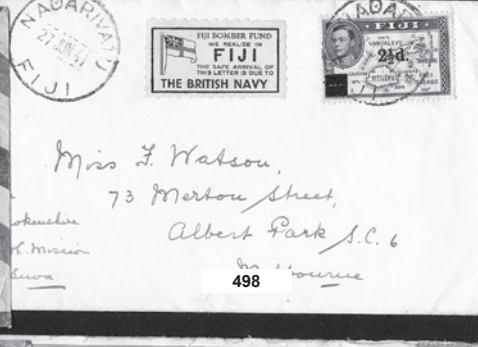 NADARIVATU
27 JUN 41
FIJI
FIJI BOMBER FUND
WE REALIZE IN
FIJI
THE SAFE ARRIVAL OF
THIS LETTER IS DUE TO
THE BRITISH NAVY
NADARI
FIJI
VANUA LEVU
2½d.
VITI LEVU
Miss F. Watson,
73 Merton Street,
Albert Park S.C. 6
okenshire
Mission
Suva
498